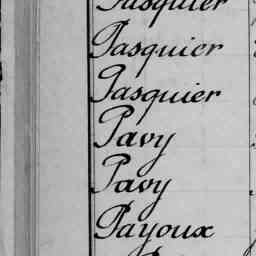 Pasquier
Pasquier
Pasquier
Pavy
Pavy
Payoux